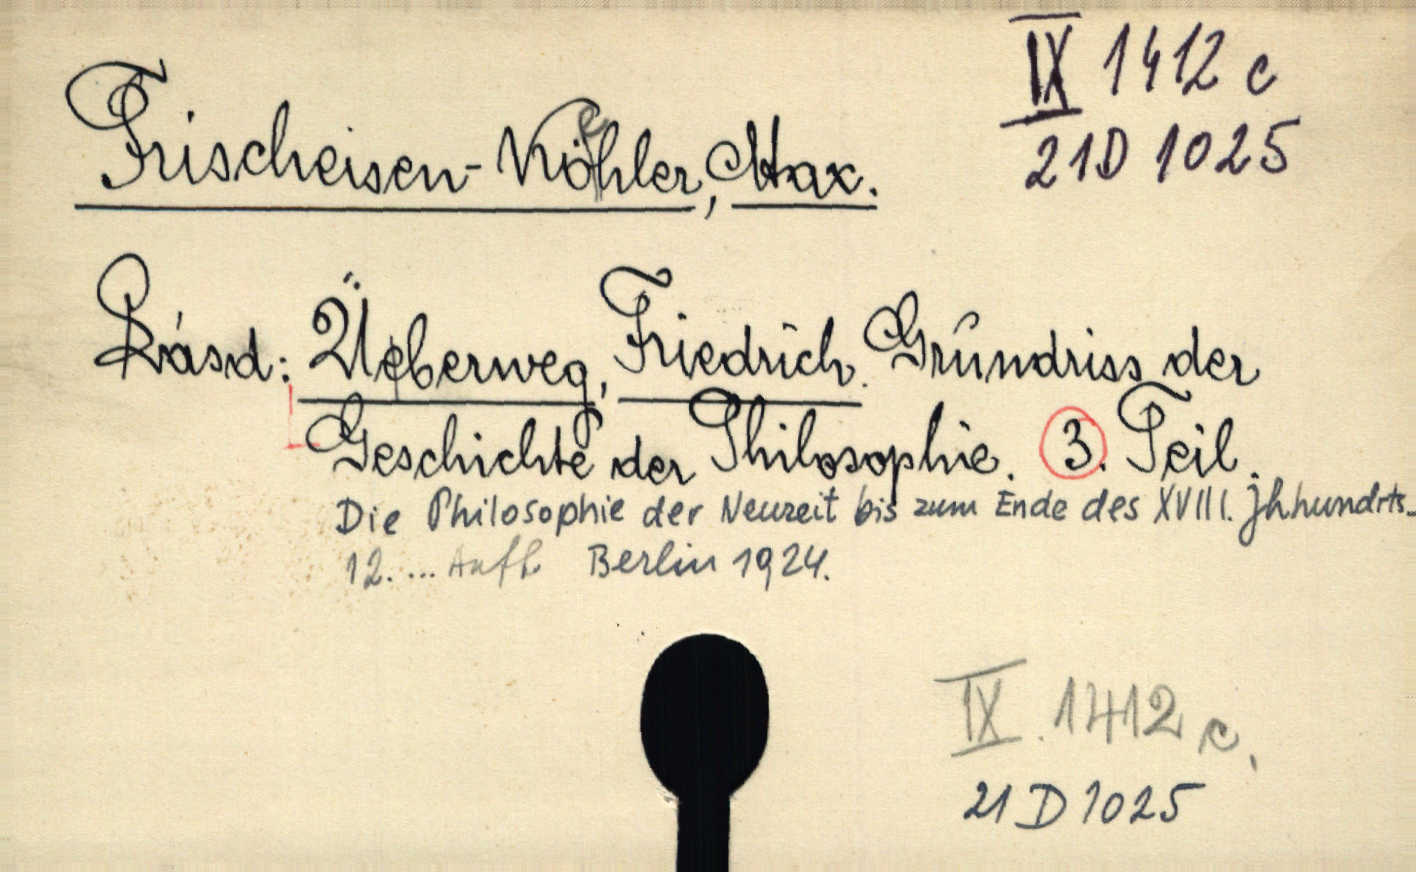 IX 1412 c
21D 1025
Frischeisen-Köhler, Max.
Lásd: Üeberweg, Friedrich. Grundriss der
Geschichte der Philosophie. 3. Teil.
Die Philosophie der Neuzeit bis zum Ende des XVIII. Jhhundrts.
12. ... Aufl. Berlin 1924.
IX. 1412 c.
21 D 1025